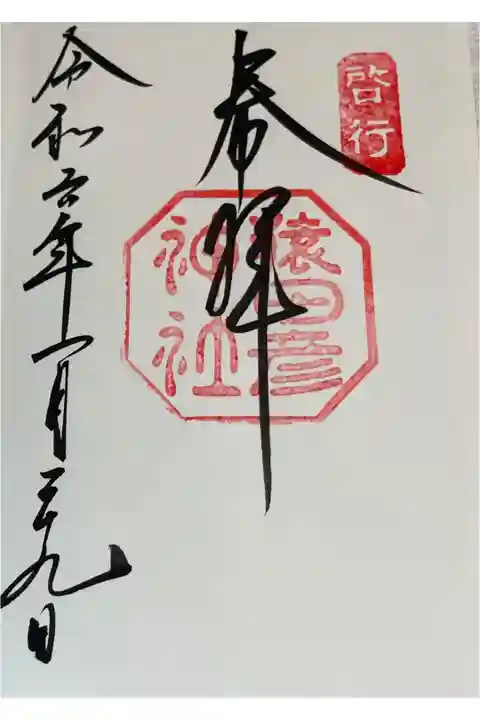 啓行
奉拝
猿田彦
神社
令和六年一月二十九日